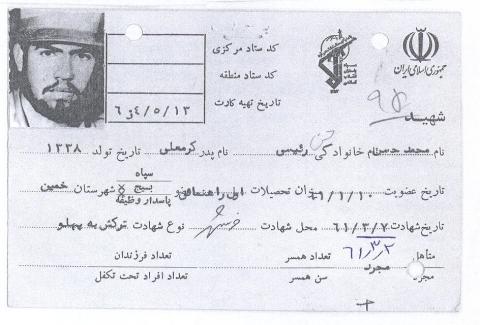 کد ستاد مرکزی
کد ستاد منطقه
تاریخ تهیه کارت
۶۴/۵/۱۳
جمهوری اسلامی ایران
شهید
نام محمد حسن نام خانوادگی رئیسی نام پدر کرمعلی تاریخ تولد ۱۳۳۸
تاریخ عضویت ۶۱/۱/۱۰ میزان تحصیلات اول راهنمائی عضو سپاه بسیج پاسدار وظیفه شهرستان خمین
تاریخ شهادت ۶۱/۳/۷ محل شهادت نوع شهادت ترکش به پهلو
۶۱/۳/۲
متأهل تعداد همسر تعداد فرزندان
مجرد مجرد سن همسر تعداد افراد تحت تکفل